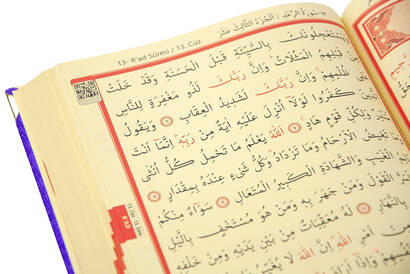 13- R'ad Sûresi / 13. Cüz
سُورَةُ الرَّعْدِ / اَلْجُزْءُ الثَّالِثَ عَشَرَ
بِالسَّيِّئَةِ قَبْلَ الْحَسَنَةِ وَقَدْ خَلَتْ
قَبْلِهِمُ الْمَثُلَاتُ وَاِنَّ رَبَّكَ لَذُو مَغْفِرَةٍ لِلنَّاسِ
ظُلْمِهِمْ وَاِنَّ رَبَّكَ لَشَدِيدُ الْعِقَابِ ٦ وَيَقُولُ
كَفَرُوا لَوْلَا اُنْزِلَ عَلَيْهِ اٰيَةٌ مِنْ رَبِّهِ اِنَّمَا اَنْتَ
وَلِكُلِّ قَوْمٍ هَادٍ ٧ اَللّٰهُ يَعْلَمُ مَا تَحْمِلُ كُلُّ اُنْثٰى
تَغِيضُ الْاَرْحَامُ وَمَا تَزْدَادُ وَكُلُّ شَيْءٍ عِنْدَهُ بِمِقْدَارٍ ٨
الْغَيْبِ وَالشَّهَادَةِ الْكَبِيرُ الْمُتَعَالِ ٩ سَوَاءٌ مِنْكُمْ
الْقَوْلَ وَمَنْ جَهَرَ بِهِ وَمَنْ هُوَ مُسْتَخْفٍ بِالَّيْلِ
بِالنَّهَارِ ١٠ لَهُ مُعَقِّبَاتٌ مِنْ بَيْنِ يَدَيْهِ وَمِنْ خَلْفِهِ
اَمْرِ اللّٰهِ اِنَّ اللّٰهَ لَا